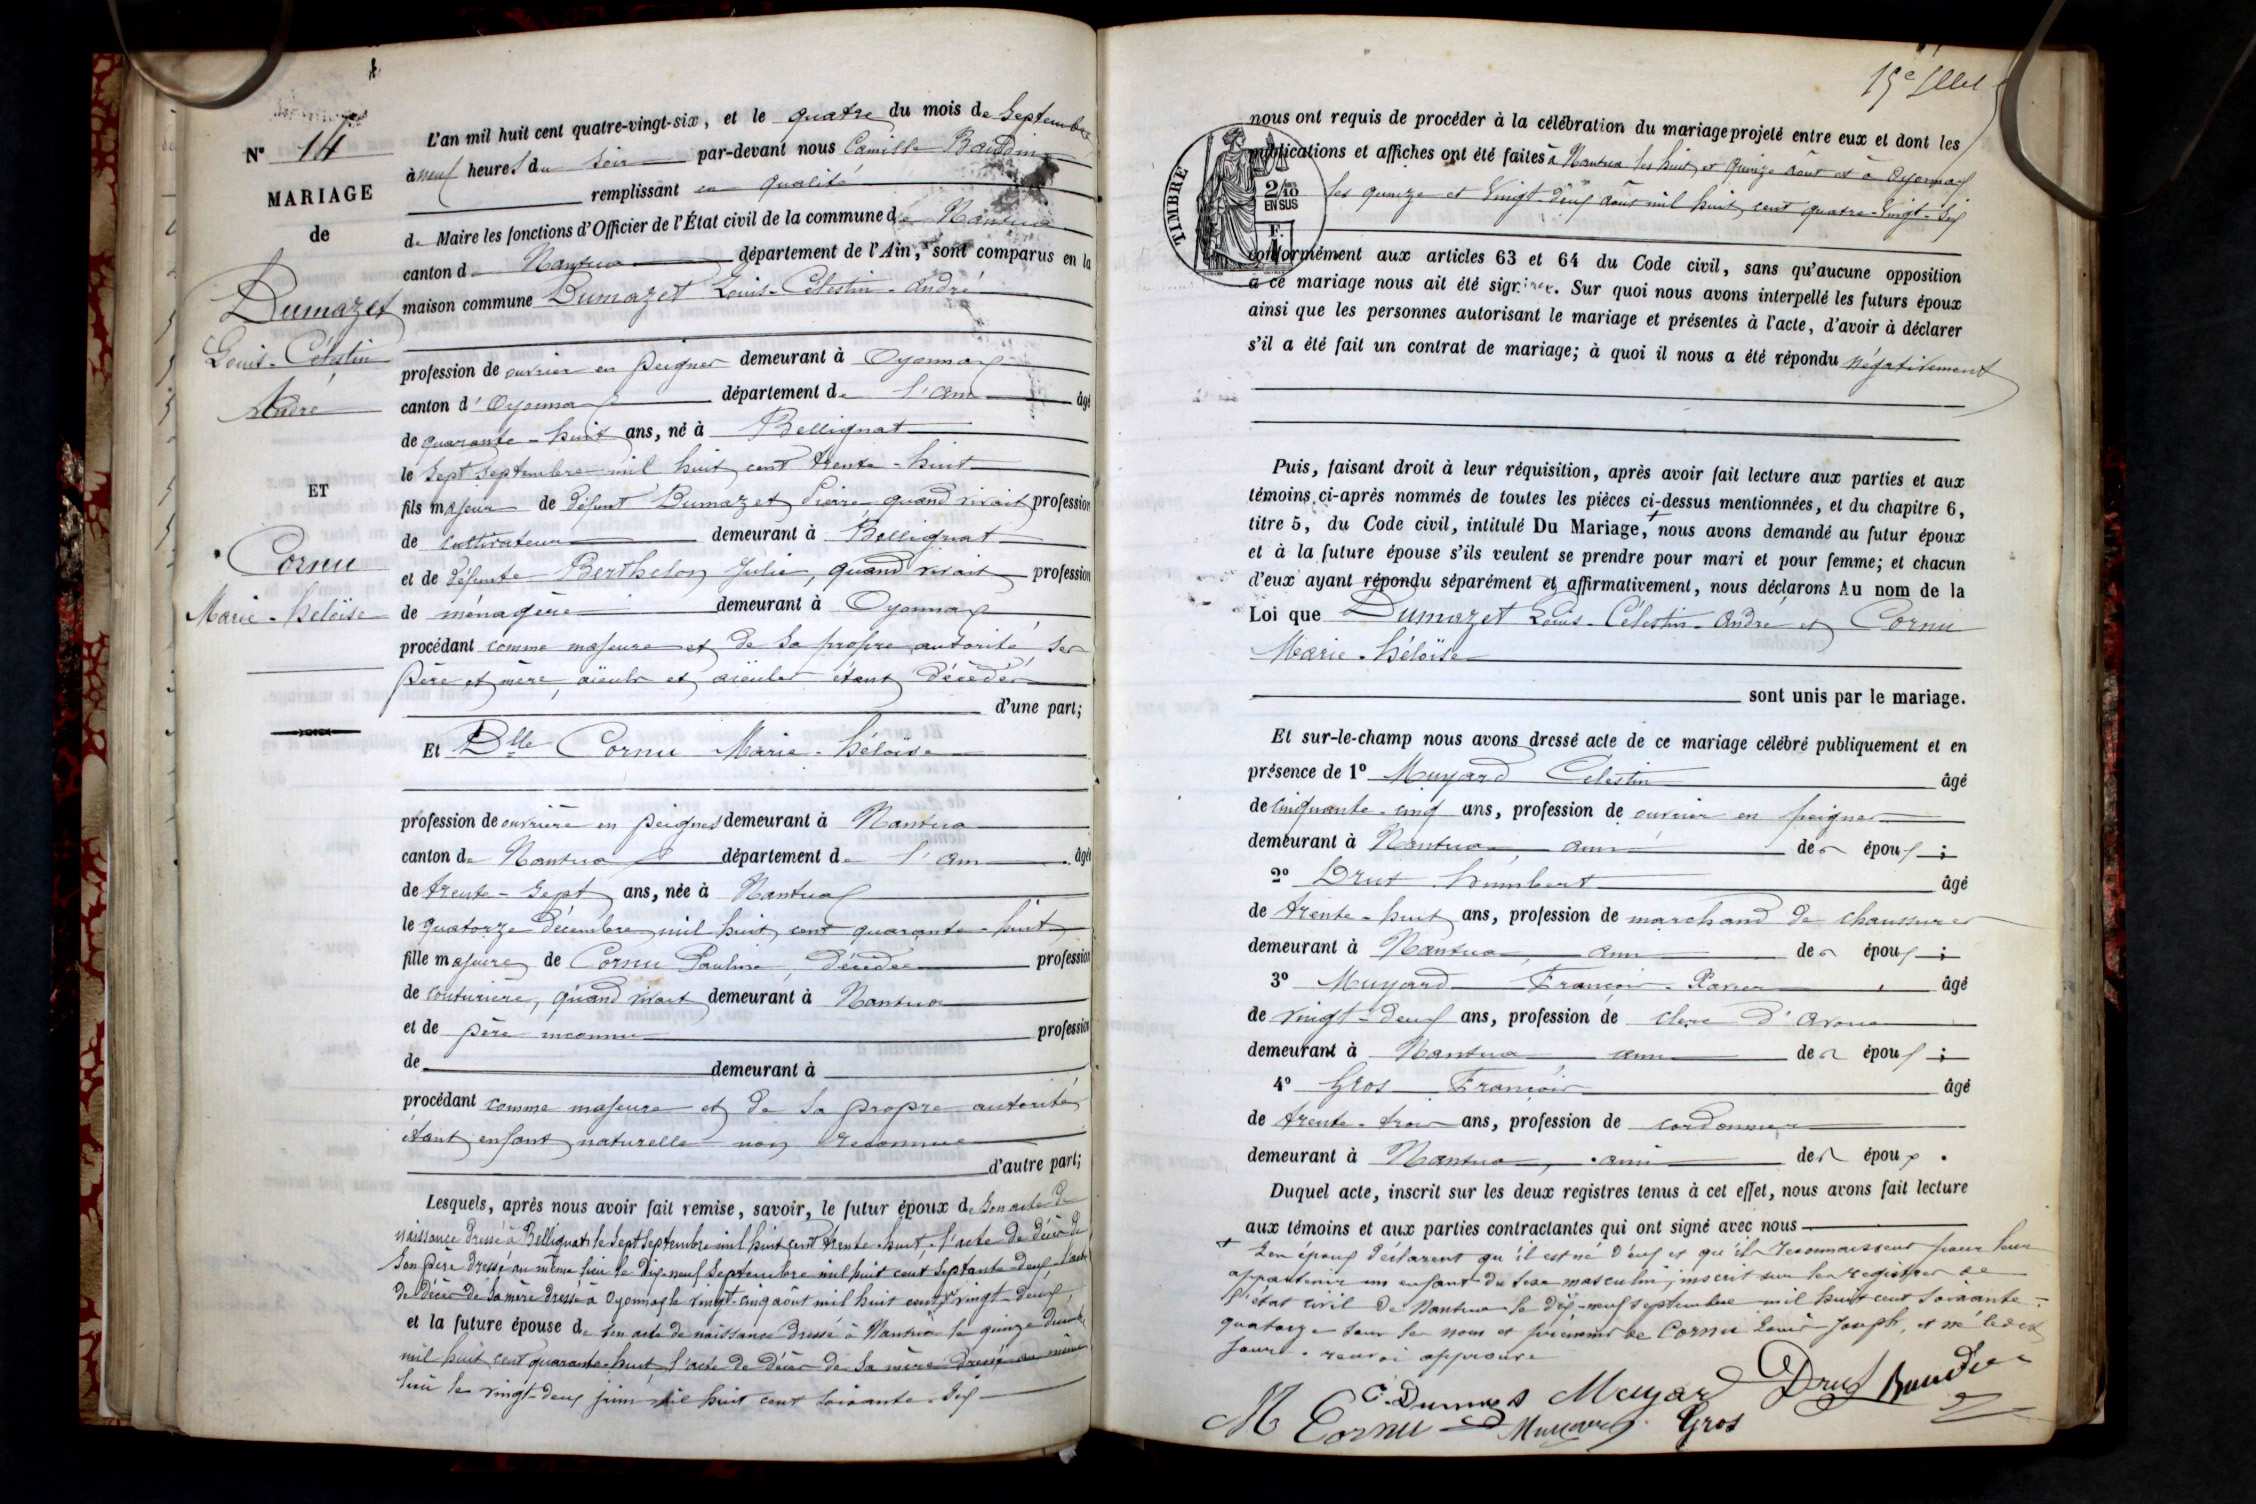 N° 14
MARIAGE
de
Dumazet
Louis-Célestin
André
ET
Cornu
Marie-Héloïse
L'an mil huit cent quatre-vingt-six, et le quatre du mois de Septembre
à neuf heures du soir par-devant nous Camille Baudin
remplissant en qualité
de Maire les fonctions d'Officier de l'État civil de la commune de Nantua
canton d Nantua département de l'Ain, sont comparus en la
maison commune Dumazet Louis-Célestin-André
profession de ouvrier en peignes demeurant à Oyonnax
canton d'Oyonnax département de l'Ain âgé
de quarante-huit ans, né à Bellignat
le sept septembre mil huit cent trente-huit
fils majeur de défunt Dumazet Pierre quand vivait profession
de cultivateur demeurant à Bellignat
et de défunte Berthelon Julie, quand vivait profession
de ménagère demeurant à Oyonnax
procédant comme majeure et de sa propre autorité, ses
père et mère, aïeuls et aïeules étant décédés
d'une part;
Et Dlle Cornu Marie-Héloïse
profession de ouvrière en peignes demeurant à Nantua
canton de Nantua département de l'Ain âgée
de trente-sept ans, née à Nantua
le quatorze décembre mil huit cent quarante-huit
fille majeure de Cornu Pauline, décédée profession
de couturière, quand vivait demeurant à Nantua
et de père inconnu profession
de demeurant à
procédant comme majeure et de sa propre autorité,
étant enfant naturelle non reconnue
d'autre part;
Lesquels, après nous avoir fait remise, savoir, le futur époux de son acte de
naissance dressé à Bellignat le sept septembre mil huit cent trente-huit, l'acte de décès de
son père dressé au même lieu le dix-neuf septembre mil huit cent septante-deux, l'acte
de décès de sa mère dressé à Oyonnax le vingt-cinq août mil huit cent vingt-deux,
et la future épouse de son acte de naissance dressé à Nantua le quinze décembre
mil huit cent quarante-huit, l'acte de décès de sa mère dressé au même
lieu le vingt-deux juin mil huit cent soixante-six
15e fllet
TIMBRE
2/10
EN SUS
F.
nous ont requis de procéder à la célébration du mariage projeté entre eux et dont les
publications et affiches ont été faites à Nantua les huit et quinze août et à Oyonnax
les quinze et vingt-deux août mil huit cent quatre-vingt-six
conformément aux articles 63 et 64 du Code civil, sans qu'aucune opposition
à ce mariage nous ait été signifiée. Sur quoi nous avons interpellé les futurs époux
ainsi que les personnes autorisant le mariage et présentes à l'acte, d'avoir à déclarer
s'il a été fait un contrat de mariage; à quoi il nous a été répondu négativement
Puis, faisant droit à leur réquisition, après avoir fait lecture aux parties et aux
témoins ci-après nommés de toutes les pièces ci-dessus mentionnées, et du chapitre 6,
titre 5, du Code civil, intitulé Du Mariage, + nous avons demandé au futur époux
et à la future épouse s'ils veulent se prendre pour mari et pour femme; et chacun
d'eux ayant répondu séparément et affirmativement, nous déclarons Au nom de la
Loi que Dumazet Louis-Célestin-André et Cornu
Marie-Héloïse
sont unis par le mariage.
Et sur-le-champ nous avons dressé acte de ce mariage célébré publiquement et en
présence de 1° Muyard Célestin âgé
de cinquante-cinq ans, profession de ouvrier en peignes
demeurant à Nantua, ami des époux;
2° Drut Humbert âgé
de trente-huit ans, profession de marchand de chaussures
demeurant à Nantua, ami des époux;
3° Muyard François-Xavier âgé
de vingt-deux ans, profession de clerc d'avoué
demeurant à Nantua ami des époux;
4° Gros François âgé
de trente-trois ans, profession de cordonnier
demeurant à Nantua, ami des époux.
Duquel acte, inscrit sur les deux registres tenus à cet effet, nous avons fait lecture
aux témoins et aux parties contractantes qui ont signé avec nous
+ Les époux déclarent qu'il est né d'eux et qu'ils reconnaissent pour leur
appartenir un enfant du sexe masculin, inscrit sur les registres de
l'état civil de Nantua le dix-neuf septembre mil huit cent soixante-
quatorze sous les nom et prénoms de Cornu Louis-Joseph, et né le dit
jour. renvoi approuvé
C. Dumazet Muyard Drut Baudin
M Cornu Muyard Gros